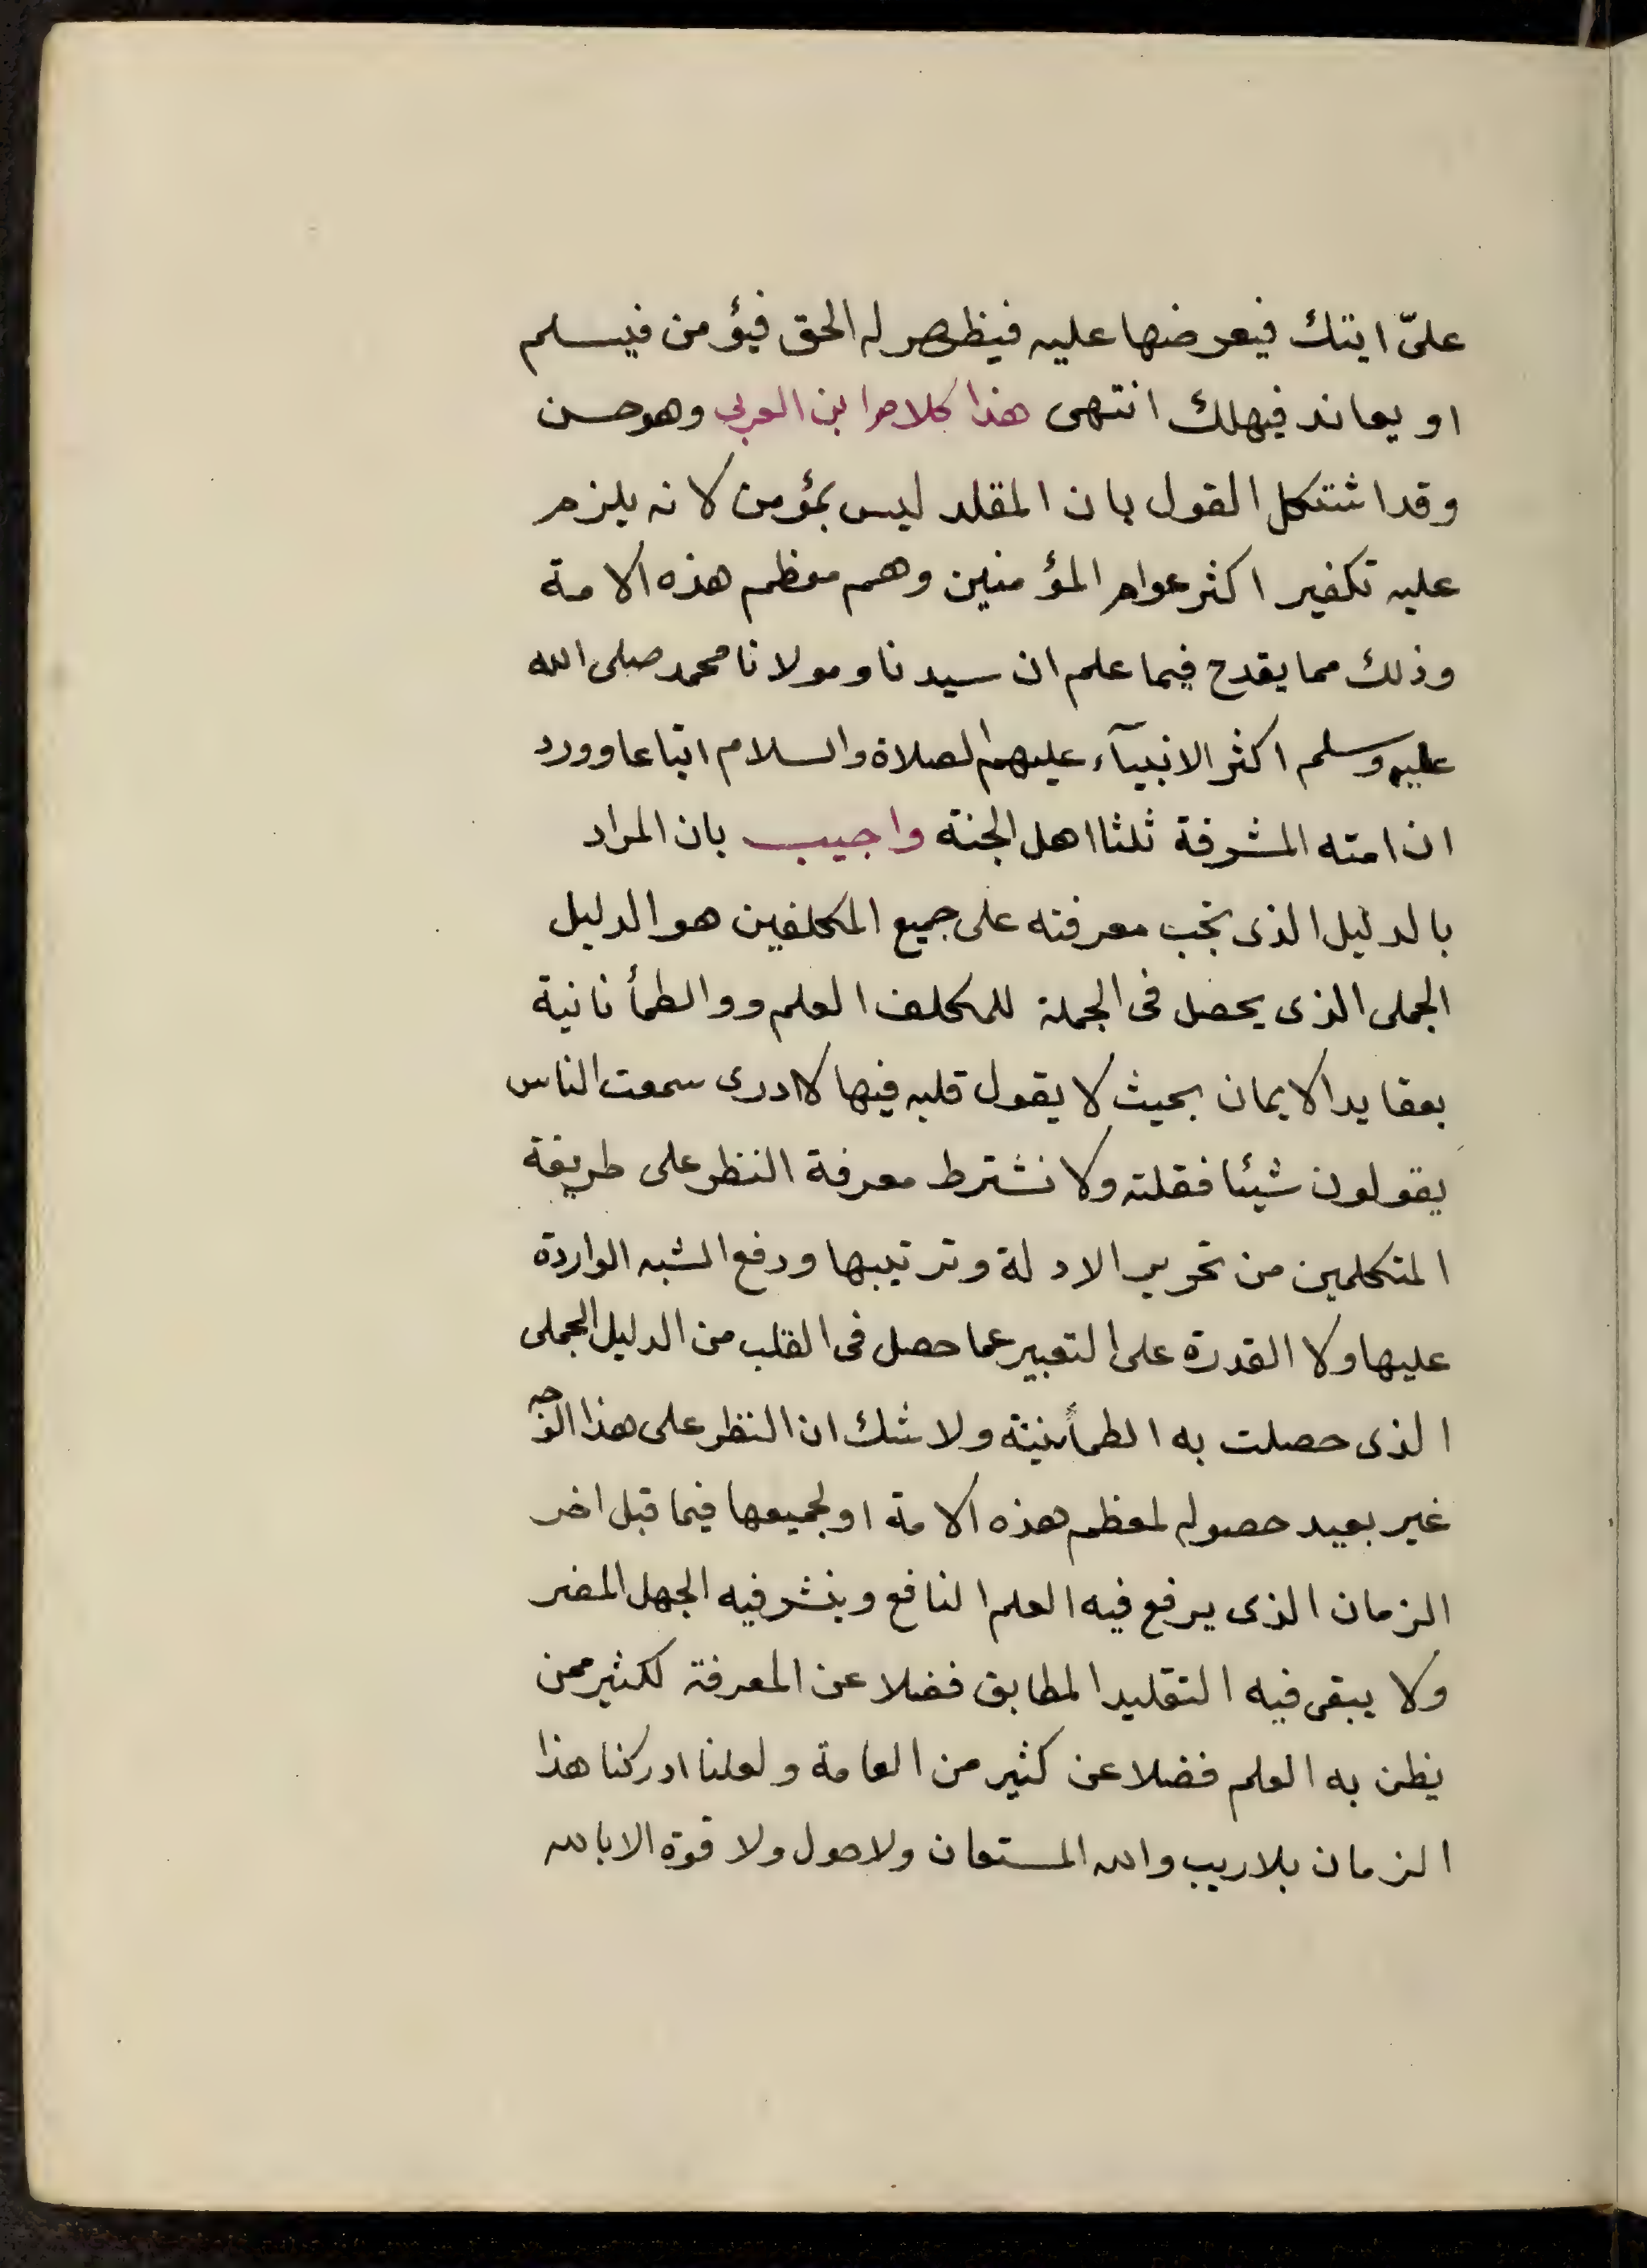 علىّ ايتك فيعرضها عليه فيظهر له الحق فيؤمن فيسلم
او يعاند فيهلك انتهى هذا كلام ابن العربى وهو حسن
وقد اشتتكل القول بان المقلد ليس بمؤمن لانه يلزم
عليه تكفير اكثر عوام المؤمنين وهم معظم هذه الامة
وذلك مما يقدح فيما علم ان سيدنا ومولانا محمد صلى الله
عليه وسلم اكثر الانبيآء عليهم الصلاة والسلام اتباعا وورد
ان امته المشرفة ثلثا اهل الجنة واجيب بان المراد
بالدليل الذى تجب معرفته على جميع المكلفين هو الدليل
الجملى الذى يحصل فى الجملة للمكلف العلم ووالطمأنانية
بعقايد الايمان بحيث لا يقول قلبه فيها لا ادرى سمعت الناس
يقولون شيئا فقلته ولا نشترط معرفة النظر على طريقة
المتكلمين من تحرير الادلة وترتيبها ودفع الشبه الواردة
عليها ولا القدرة على التعبير عما حصل فى القلب من الدليل الجملى
الذى حصلت به الطمأنينة ولا شك ان النظر على هذا الوجه
غير بعيد حصوله لمعظم هذه الامة او لجميعها فيما قبل اخر
الزمان الذى يرفع فيه العلم النافع وينشر فيه الجهل المضر
ولا يبقى فيه التقليد المطابق فضلا عن المعرفة لكثير ممن
يظن به العلم فضلا عن كثير من العامة ولعلنا ادركنا هذا
الزمان بلا ريب والله المستعان ولا حول ولا قوة الا بالله